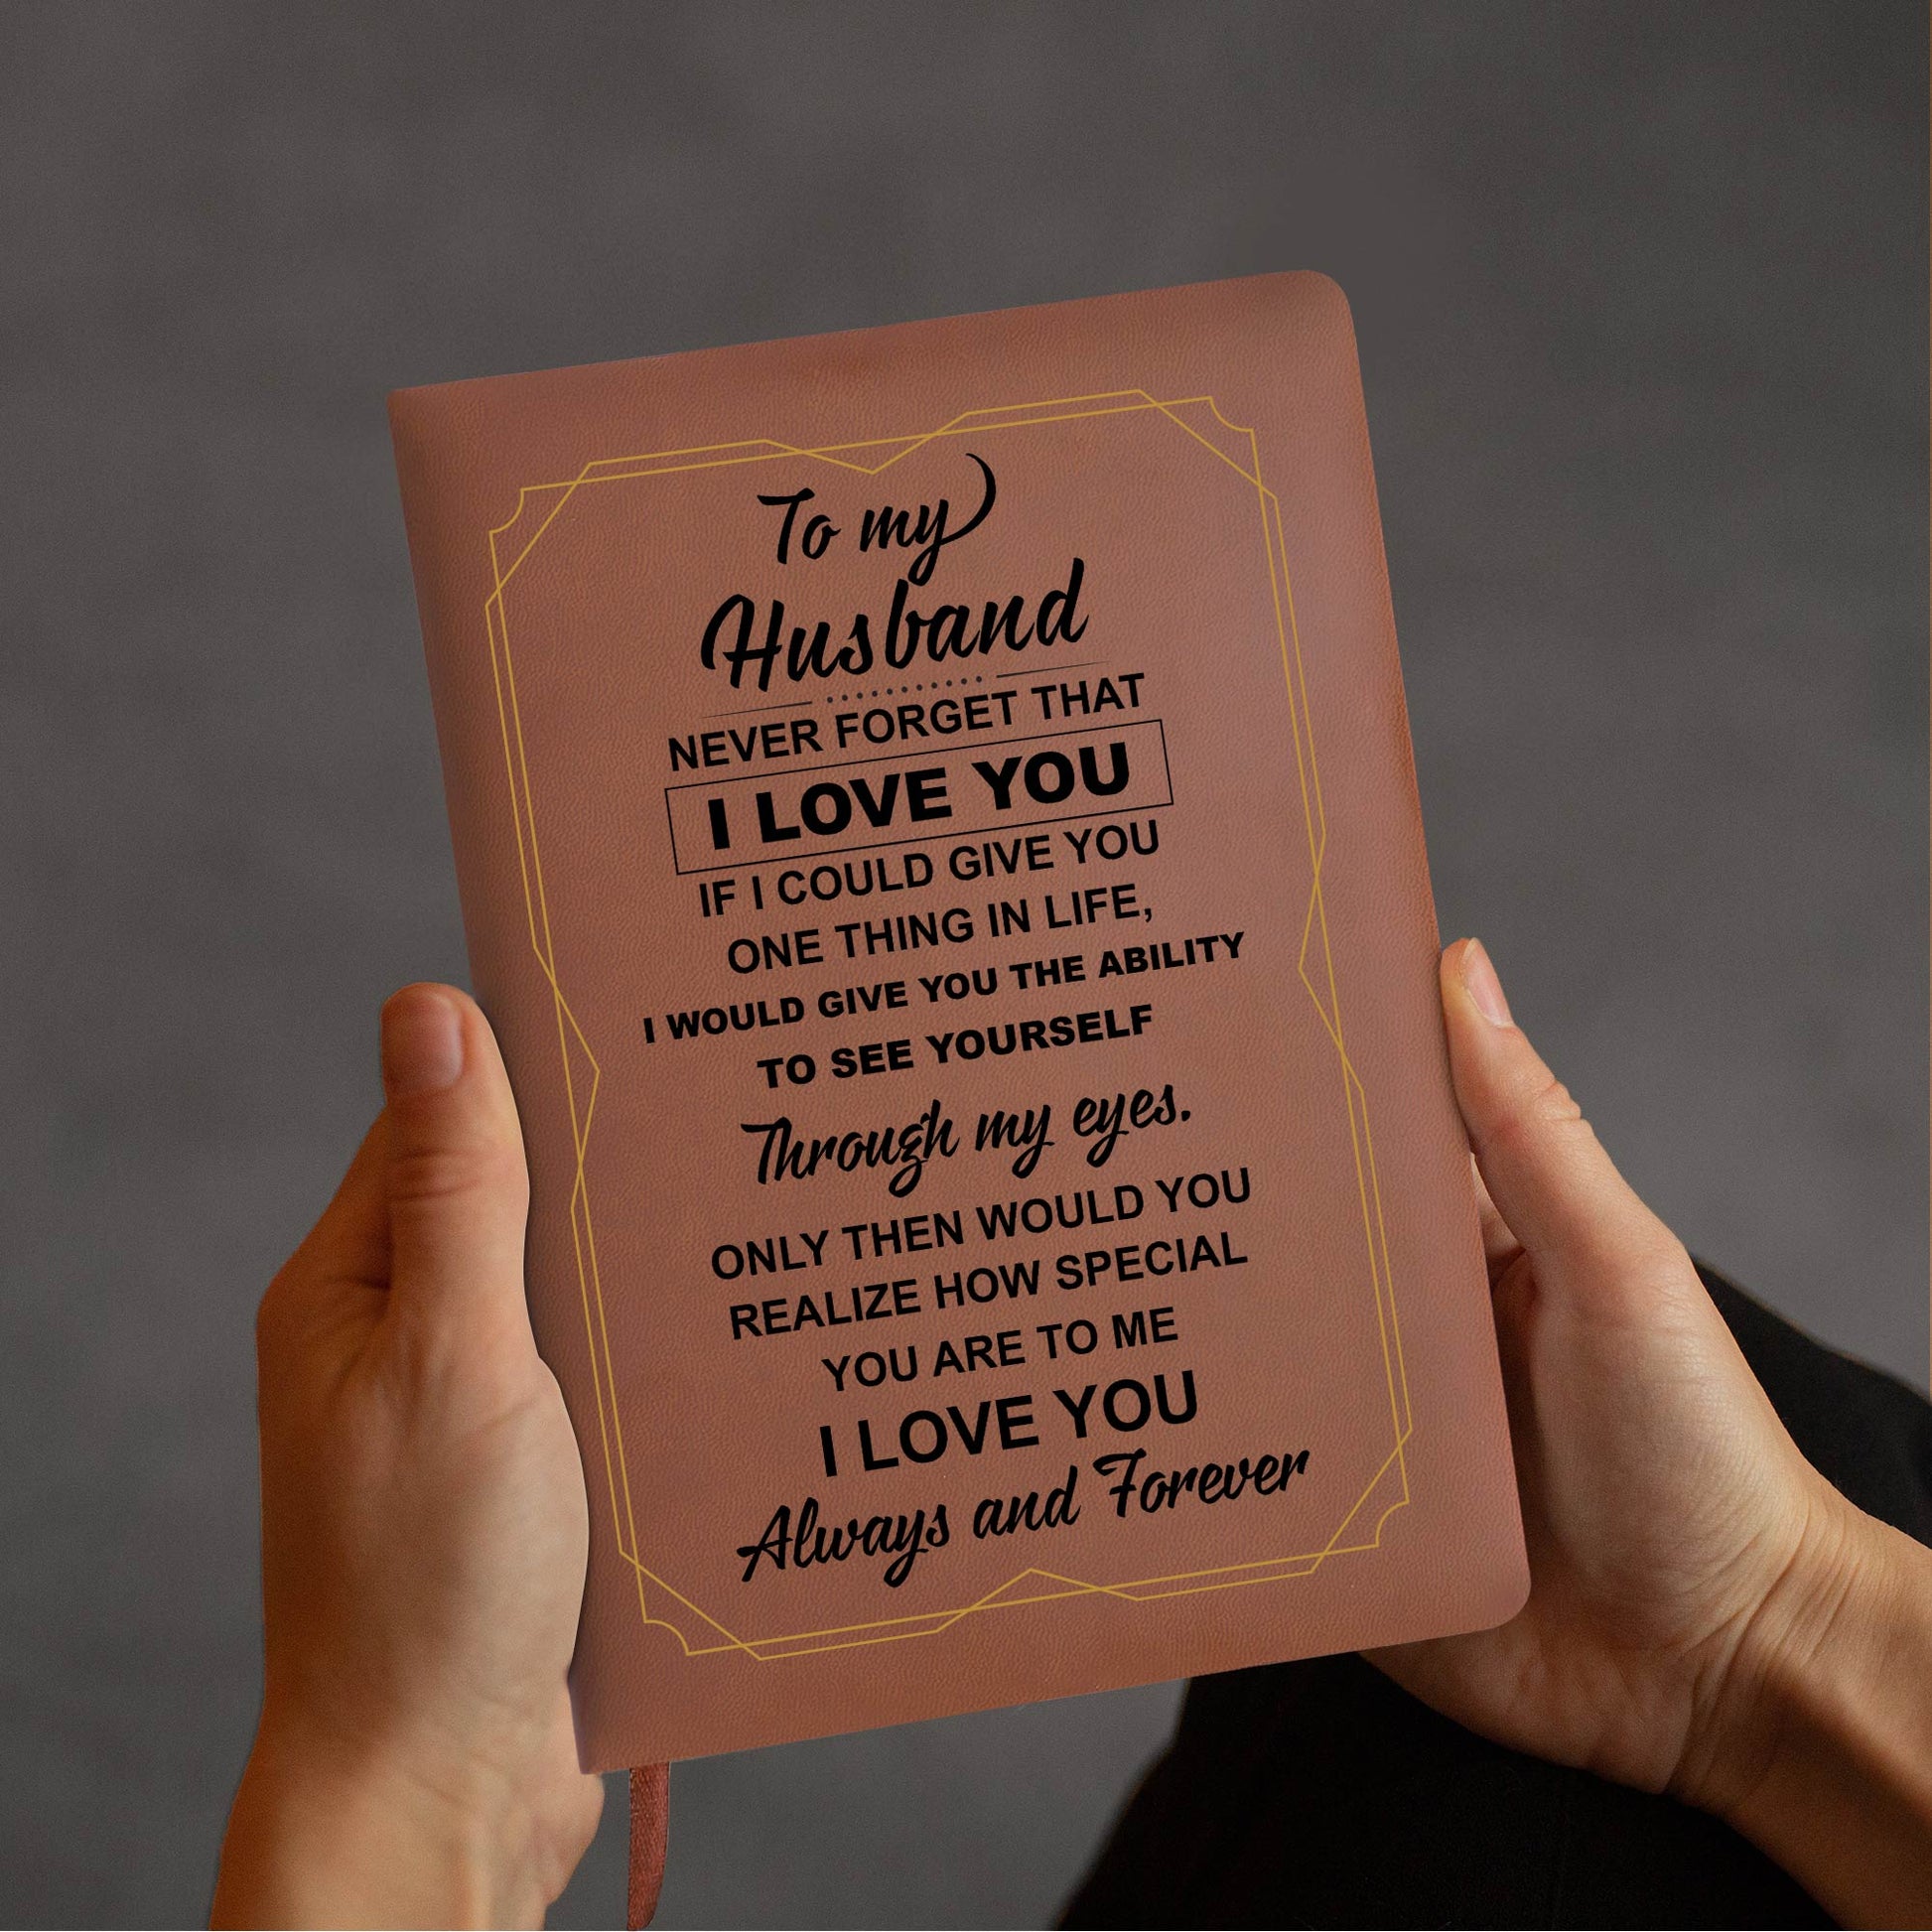 To my
Husband
NEVER FORGET THAT
I LOVE YOU
IF I COULD GIVE YOU
ONE THING IN LIFE,
I WOULD GIVE YOU THE ABILITY
TO SEE YOURSELF
Through my eyes.
ONLY THEN WOULD YOU
REALIZE HOW SPECIAL
YOU ARE TO ME
I LOVE YOU
Always and Forever